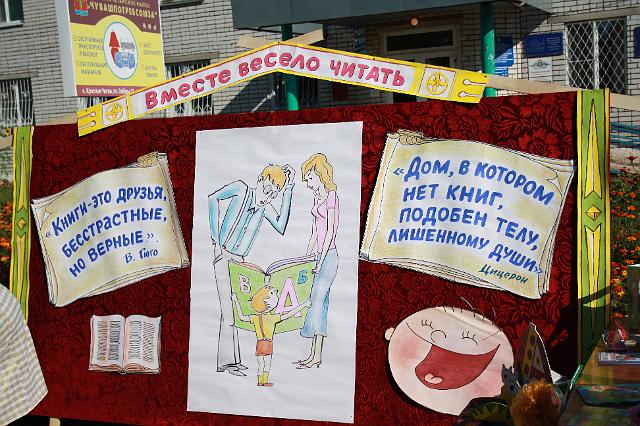 ЧУВАШПОТРЕБСОЮЗА
Вместе весело читать
«Книги-это друзья,
бесстрастные,
но верные».
В. Гюго
«Дом, в котором
нет книг,
подобен телу,
лишенному души»
Цицерон
В Б
Д